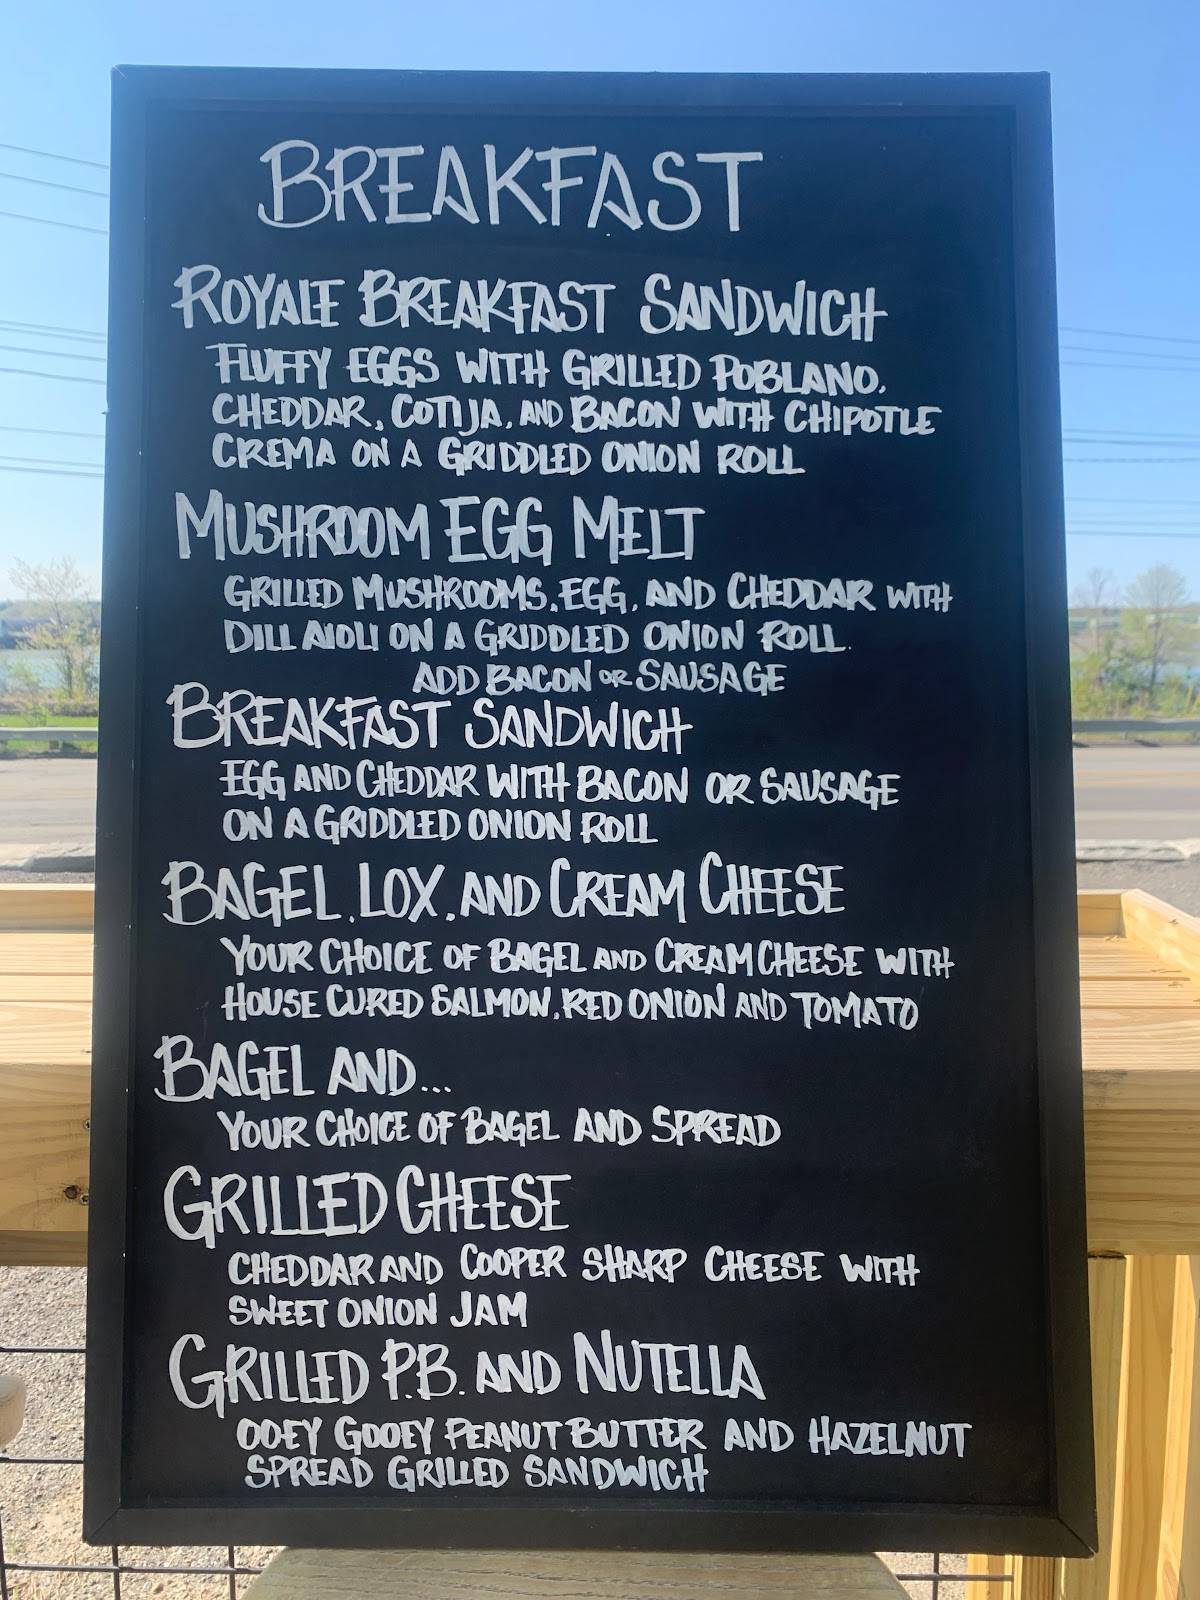 BREAKFAST
ROYALE BREAKFAST SANDWICH
FLUFFY EGGS WITH GRILLED POBLANO,
CHEDDAR, COTIJA, AND BACON WITH CHIPOTLE
CREMA ON A GRIDDLED ONION ROLL
MUSHROOM EGG MELT
GRILLED MUSHROOMS, EGG, AND CHEDDAR WITH
DILL AIOLI ON A GRIDDLED ONION ROLL.
ADD BACON OR SAUSAGE
BREAKFAST SANDWICH
EGG AND CHEDDAR WITH BACON OR SAUSAGE
ON A GRIDDLED ONION ROLL
BAGEL, LOX, AND CREAM CHEESE
YOUR CHOICE OF BAGEL AND CREAM CHEESE WITH
HOUSE CURED SALMON, RED ONION AND TOMATO
BAGEL AND...
YOUR CHOICE OF BAGEL AND SPREAD
GRILLED CHEESE
CHEDDAR AND COOPER SHARP CHEESE WITH
SWEET ONION JAM
GRILLED P.B. AND NUTELLA
OOEY GOOEY PEANUT BUTTER AND HAZELNUT
SPREAD GRILLED SANDWICH